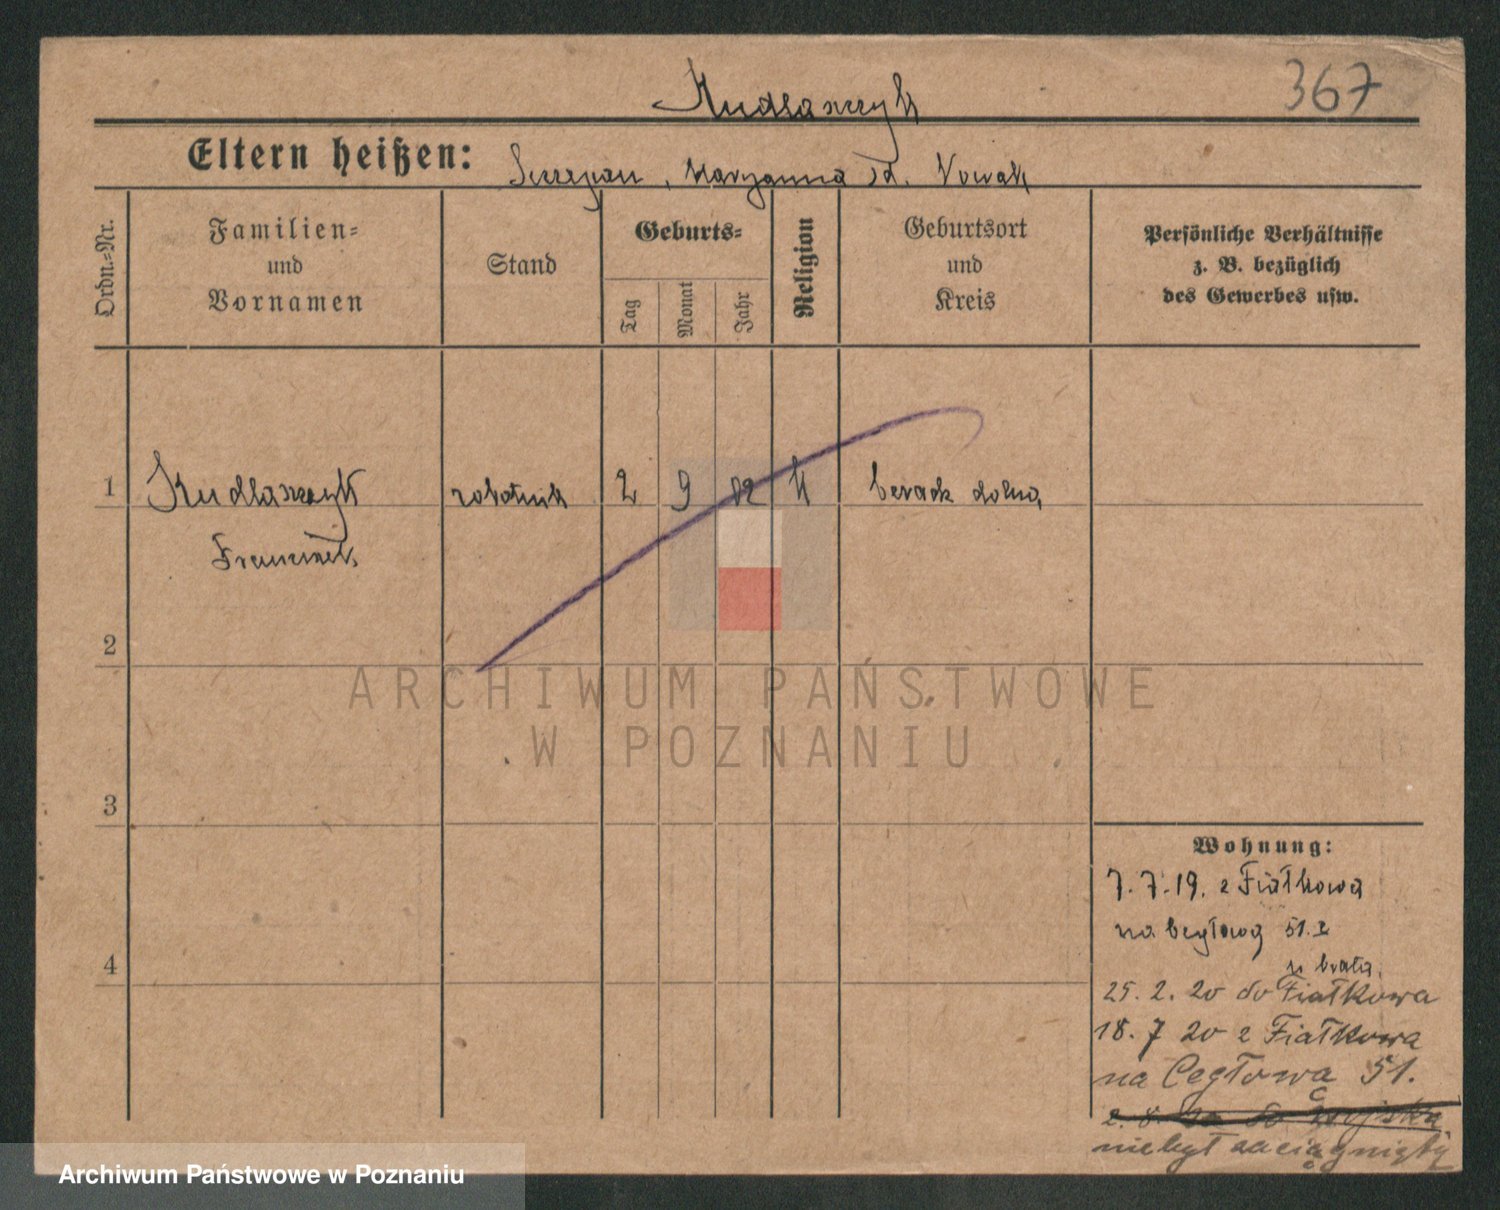 Kudlaszyk
367
Eltern heißen: Szczepan, Maryanna zd. Nowak
Ordn.-Nr.
Familien-
und
Vornamen
Stand
Geburts-
Tag
Monat
Jahr
Religion
Geburtsort
und
Kreis
Persönliche Verhältnisse
z. B. bezüglich
des Gewerbes usw.
1 Kudlaszyk robotnik 2 9 82 k
Franciszek
2
3
4
ARCHIWUM PAŃSTWOWE
W POZNANIU
Wohnung:
7. 7. 19. z Fiałkowa
na 51.
u brata
25. 2. 20 do Fiałkowa
18. 7 20 z Fiałkowa
na Cegłowa 51.
2. 8. do wojska
niebył zaciągnięty
Archiwum Państwowe w Poznaniu